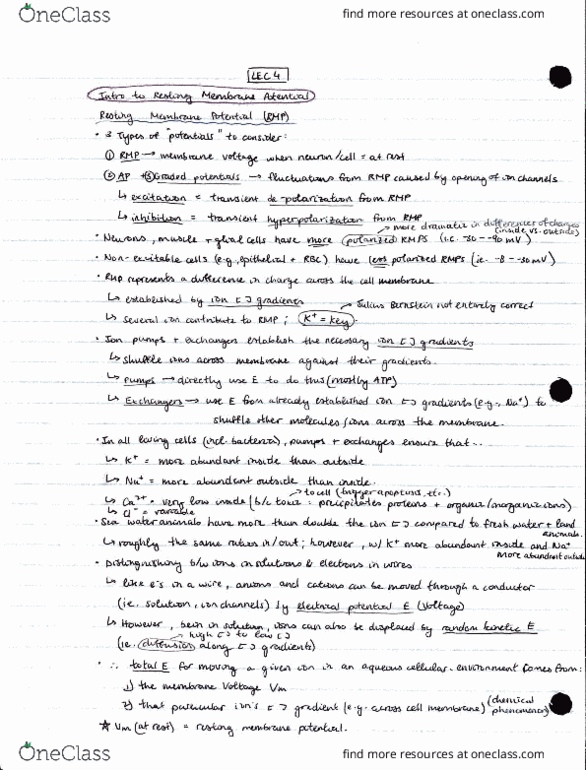 OneClass
find more resources at oneclass.com
LEC 4
Intro to Resting Membrane Potential
Resting Membrane Potential (RMP)
• 3 Types of "potentials" to consider:
① RMP → membrane voltage when neuron/cell = at rest
② AP + ③ Graded potentials → fluctuations from RMP caused by opening of ion channels
↳ excitation = transient de-polarization from RMP
↳ inhibition = transient hyperpolarization from RMP
→ more dramatic in differences of charges (inside vs. outside)
• Neurons, muscle + glial cells have more polarized RMPS (i.e. -50 → -90 mV)
• Non-excitable cells (e.g. epithelial + RBC) have less polarized RMPs (ie. -8 → -30mV)
• RMP represents a difference in charge across the cell membrane
↳ established by ion [ ] gradients
→ Julius Bernstein not entirely correct
↳ several ion contribute to RMP; K+ = key
• Ion pumps + exchangers establish the necessary ion [ ] gradients
↳ shuffle ions across membrane against their gradients.
↳ pumps → directly use E to do this (mostly ATP)
↳ Exchangers → use E from already established ion [ ] gradients (e.g., Na+) to
shuffle other molecules/ions across the membrane.
• In all living cells (incl. bacteria), pumps + exchanges ensure that..
↳ K+ = more abundant inside than outside
↳ Na+ = more abundant outside than inside.
→ to cell (trigger apoptosis, etc.)
↳ Ca2+ = very low inside (b/c toxic: precipitates proteins + organic/inorganic ions)
↳ Cl- = variable
• Sea water animals have more than double the ion [ ] compared to fresh water + land
animals.
↳ roughly the same ratios in/out; however, w/ K+ more abundant inside and Na+
more abundant outside
• Distinguishing b/w ions in solutions & electrons in wires
↳ like e's in a wire, anions and cations can be moved through a conductor
(i.e. solution, ion channels) by electrical potential E (Voltage)
↳ However, bein in solution, ions can also be displaced by random kinetic E
→ high [ ] to low [ ]
(ie. diffusion along [ ] gradients)
• ∴ total E for moving a given ion in an aqueous cellular environment comes from:
1) the membrane voltage Vm
2) that particular ion's [ ] gradient (e.g. across cell membrane) (chemical
phenomenon)
★ Vm (at rest) = resting membrane potential.
OneClass
find more resources at oneclass.com